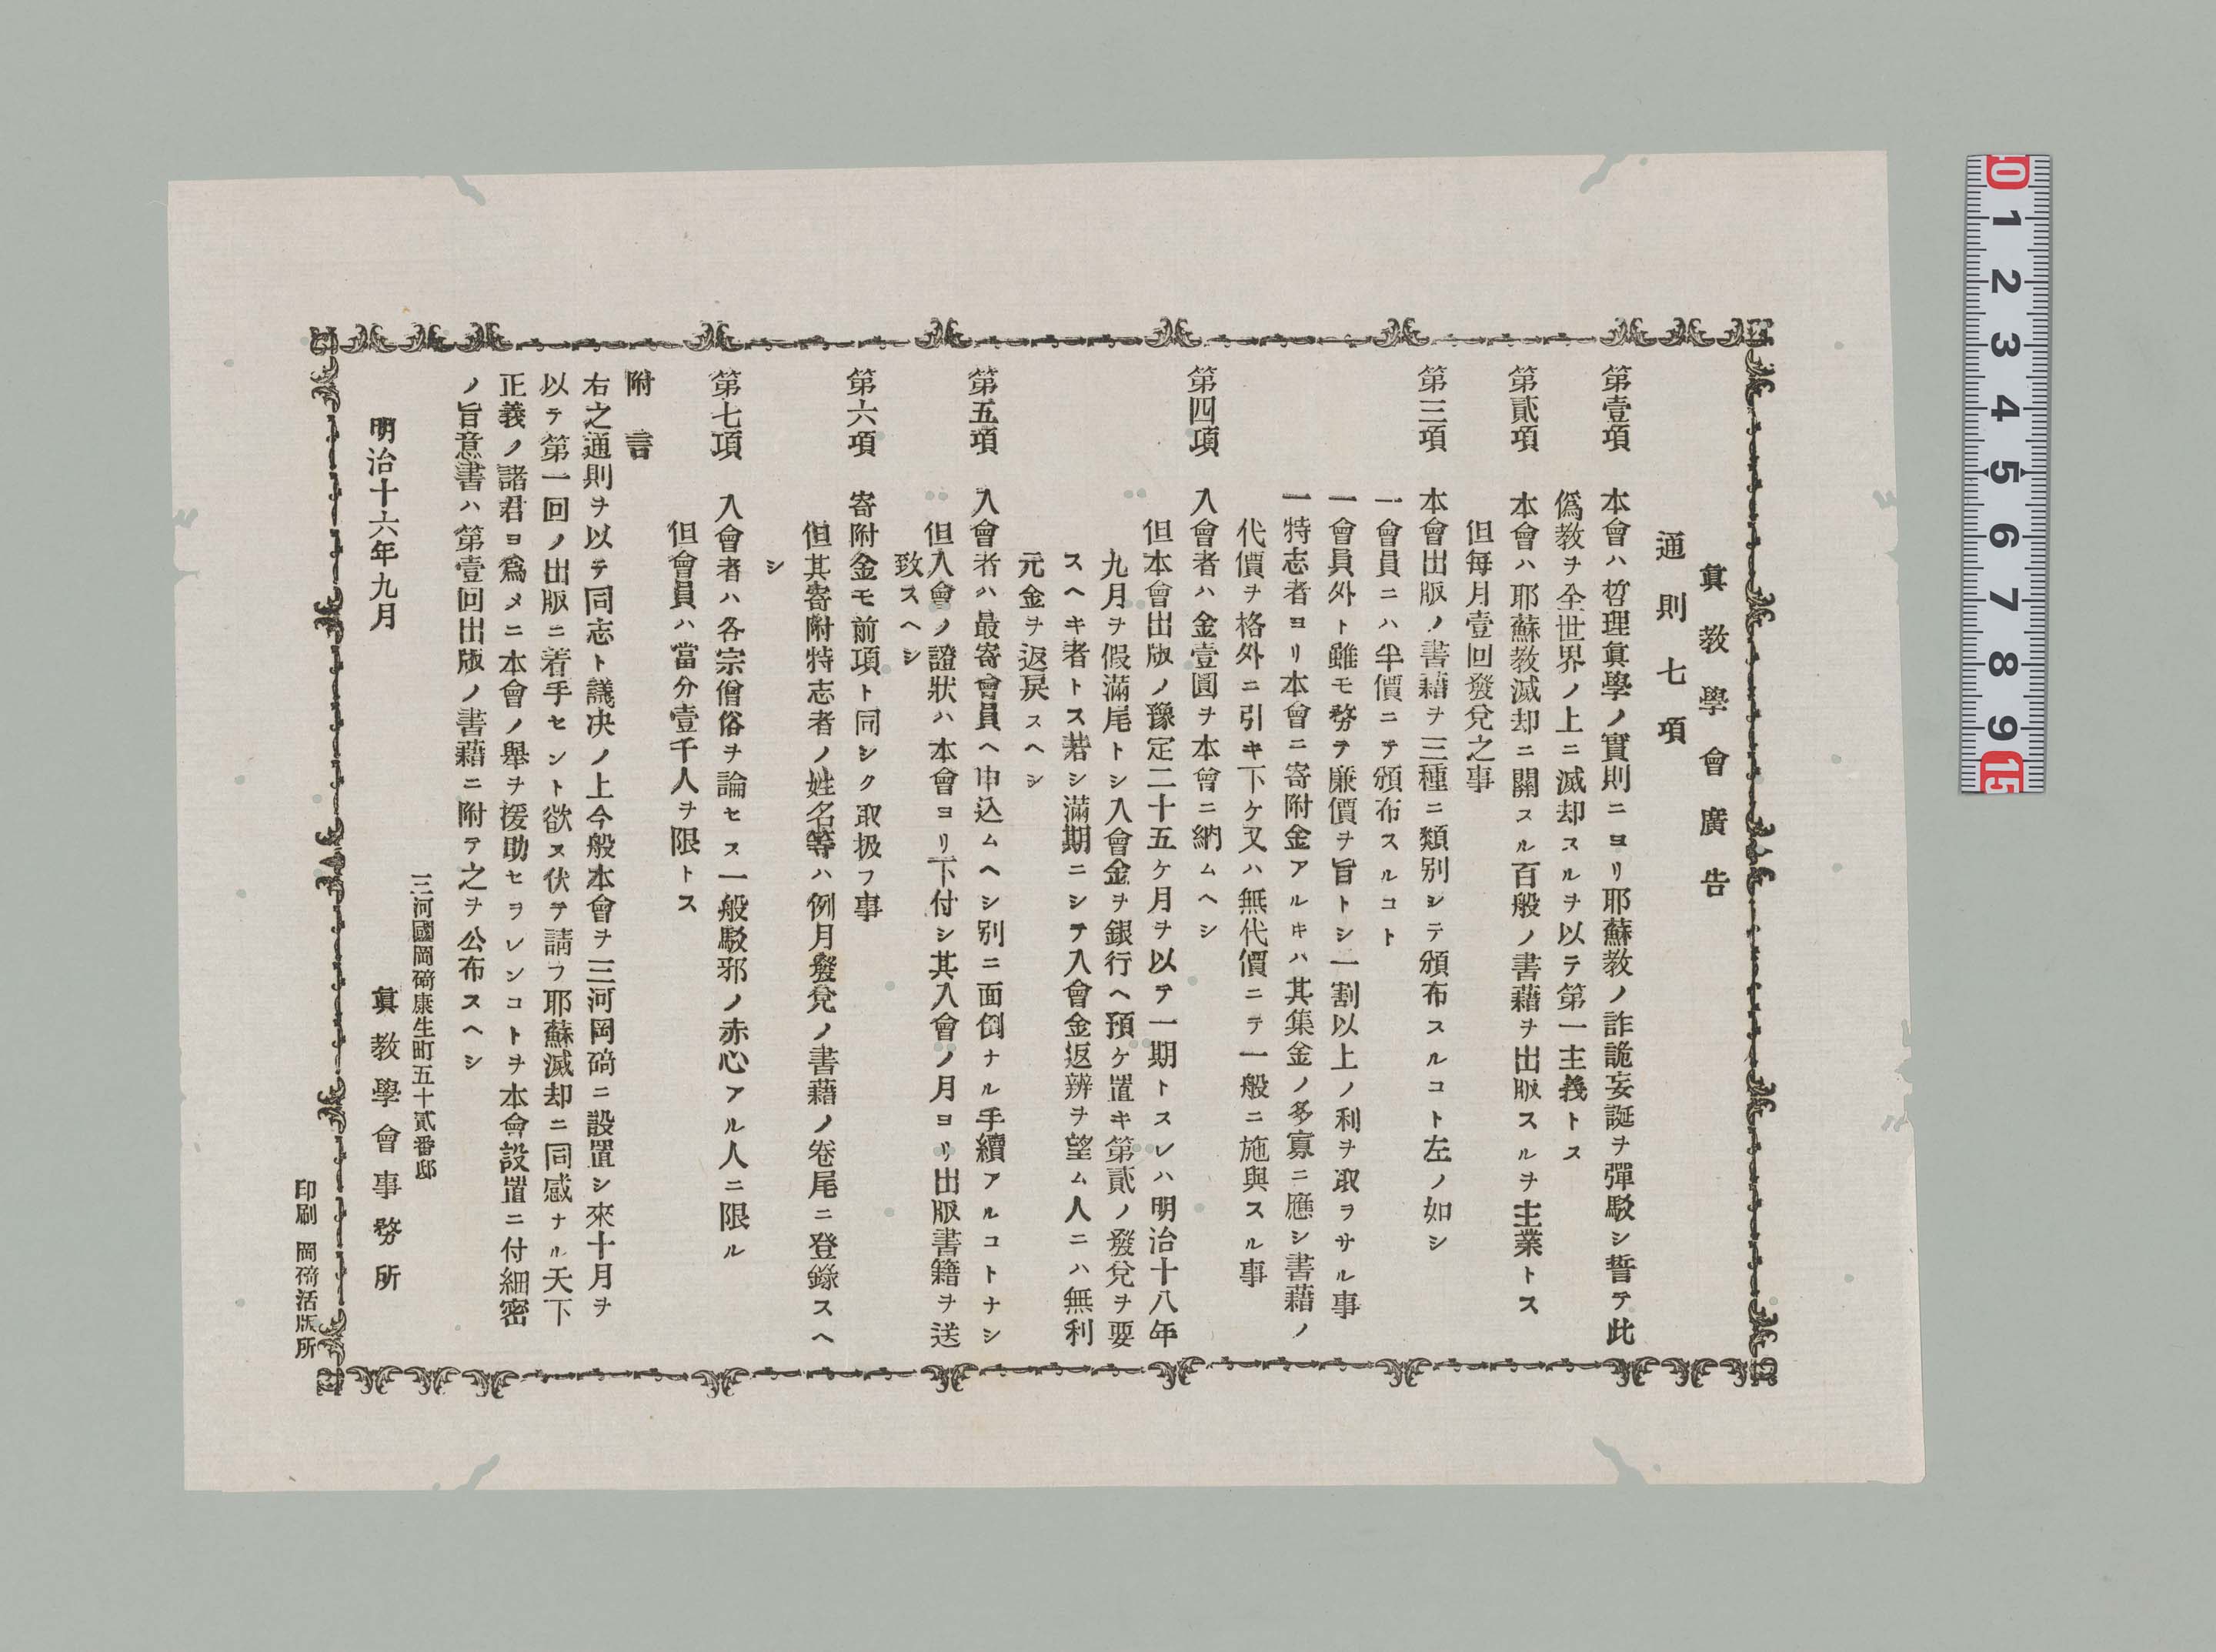 眞敎學會廣告
通則七項
第壹項 本會ハ哲理眞學ノ實則ニヨリ耶蘇敎ノ詐詭妄誕ヲ彈駁シ誓テ此
僞敎ヲ全世界ノ上ニ滅却スルヲ以テ第一主義トス
第貳項 本會ハ耶蘇敎滅却ニ關スル百般ノ書藉ヲ出版スルヲ主業トス
但每月壹回發兌之事
第三項 本會出版ノ書藉ヲ三種ニ類別シテ頒布スルコト左ノ如シ
一會員ニハ半價ニテ頒布スルコト
一會員外ト雖モ務テ廉價ヲ旨トシ一割以上ノ利ヲ取ラサル事
一特志者ヨリ本會ニ寄附金アルキハ其集金ノ多寡ニ應シ書藉ノ
代價ヲ格外ニ引キ下ケ又ハ無代價ニテ一般ニ施與スル事
第四項 入會者ハ金壹圓ヲ本會ニ納ムヘシ
但本會出版ノ豫定二十五ケ月ヲ以テ一期トスレハ明治十八年
九月ヲ假滿尾トシ入會金ヲ銀行ヘ預ケ置キ第貳ノ發兌ヲ要
スヘキ者トス若シ滿期ニシテ入會金返辨ヲ望ム人ニハ無利
元金ヲ返戻スヘシ
第五項 入會者ハ最寄會員ヘ申込ムヘシ別ニ面倒ナル手續アルコトナシ
但入會ノ證狀ハ本會ヨリ下付シ其入會ノ月ヨリ出版書籍ヲ送
致スヘシ
第六項 寄附金モ前項ト同シク取扱フ事
但其寄附特志者ノ姓名等ハ例月發兌ノ書藉ノ卷尾ニ登錄スヘ
シ
第七項 入會者ハ各宗僧俗ヲ論セス一般駁邪ノ赤心アル人ニ限ル
但會員ハ當分壹千人ヲ限トス
附言
右之通則ヲ以テ同志ト議決ノ上今般本會ヲ三河岡﨑ニ設置シ來十月ヲ
以テ第一回ノ出版ニ着手セント欲ス伏テ請フ耶蘇滅却ニ同感ナル天下
正義ノ諸君ヨ爲メニ本會ノ擧ヲ援助セラレンコトヲ本會設置ニ付細密
ノ旨意書ハ第壹回出版ノ書藉ニ附テ之ヲ公布スヘシ
三河國岡﨑康生町五十貳番邸
明治十六年九月 眞敎學會事務所
印刷 岡﨑活版所
10 1 2 3 4 5 6 7 8 9 15